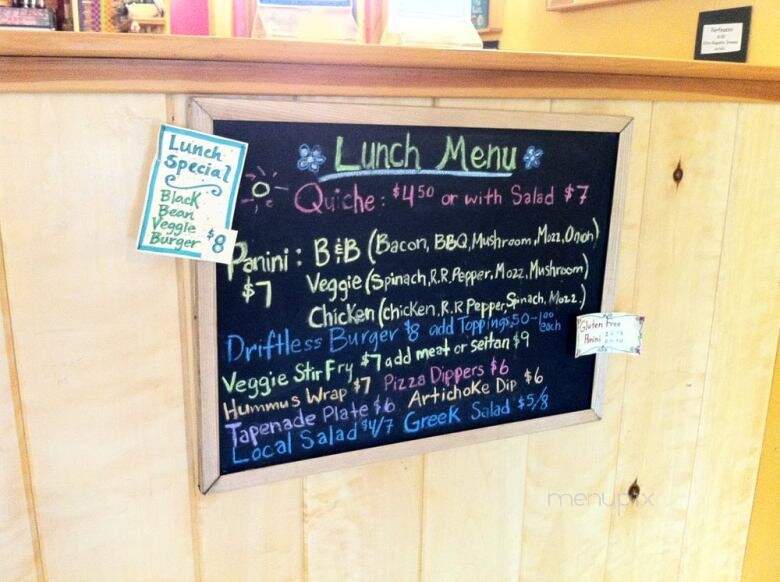 Lunch Special
Black
Bean
Veggie
Burger $8
Lunch Menu
Quiche: $4.50 or with Salad $7
Panini: B&B (Bacon, BBQ, Mushroom, Mozz, Onon)
$7 Veggie (Spinach, R.R. Pepper, Mozz, Mushroom)
Chicken (chicken, R.R Pepper, Spinach, Mozz.)
Driftless Burger $8 add Toppings .50-1.00 each
Veggie Stir Fry $7 add meat or seitan $9
Hummus Wrap $7 Pizza Dippers $6
Tapenade Plate $6 Artichoke Dip $6
Local Salad $4/7 Greek Salad $5/8
Gluten free
Panini
menupix